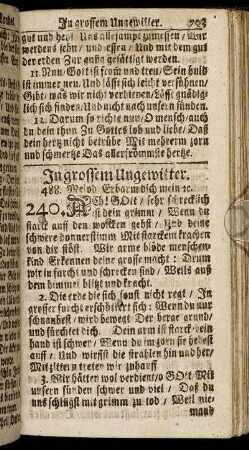 In grossem Ungewitter. 793
gut und heyl Uns allesampt zumessen / Wir
werdens sehn / und essen / Und mit dem gut
der erden Zur gnüg gesättigt werden.
11. Nun / Gott ist from und treu / Sein huld
ist immer neu / Und läßt sich leicht versöhnen /
Gibt / was wir nicht verdienen / Läßt gnädig-
lich sich finden / Und nicht nach unsern sünden.
12. Darum so richte nun / O mensch / auch
du dein thun Zu Gottes lob und liebe / Daß
dein hertz nicht betrübe Mit mehrerm zorn
und schmertze Das allerfrömmste hertze.
In grossem Ungewitter.
488. Mel. Erbarm dich mein ec.
240. ACh! GOtt / sehr schrecklich
ist dein grimm / Wenn du
starck auß den wolcken gehst / Und deine
schwere donnerstimm Mit starcken krachen
von dir stöst. Wir arme blöde menschen-
kind Erkennen deine grosse macht: Drum
wir in furcht und schrecken sind / Weils auß
dem himmel blitzt und kracht.
2. Die erde die sich sonst nicht regt / In
grosser furcht erschüttert sich: Wenn du nur
zörnest / wird bewegt Der berge grund /
und fürchtet dich. Dein arm ist starck / dein
hand ist schwer / Wenn du im zorn sie hebest
auff / Und wirffst die strahlen hin und her /
Mit zittern treter wir zuhauff.
3. Wir hätten wol verdient / o GOtt / Mit
unsern sünden schwer und viel / Daß du
uns schlügst mit grimm zu tod / Weil nie-
mand